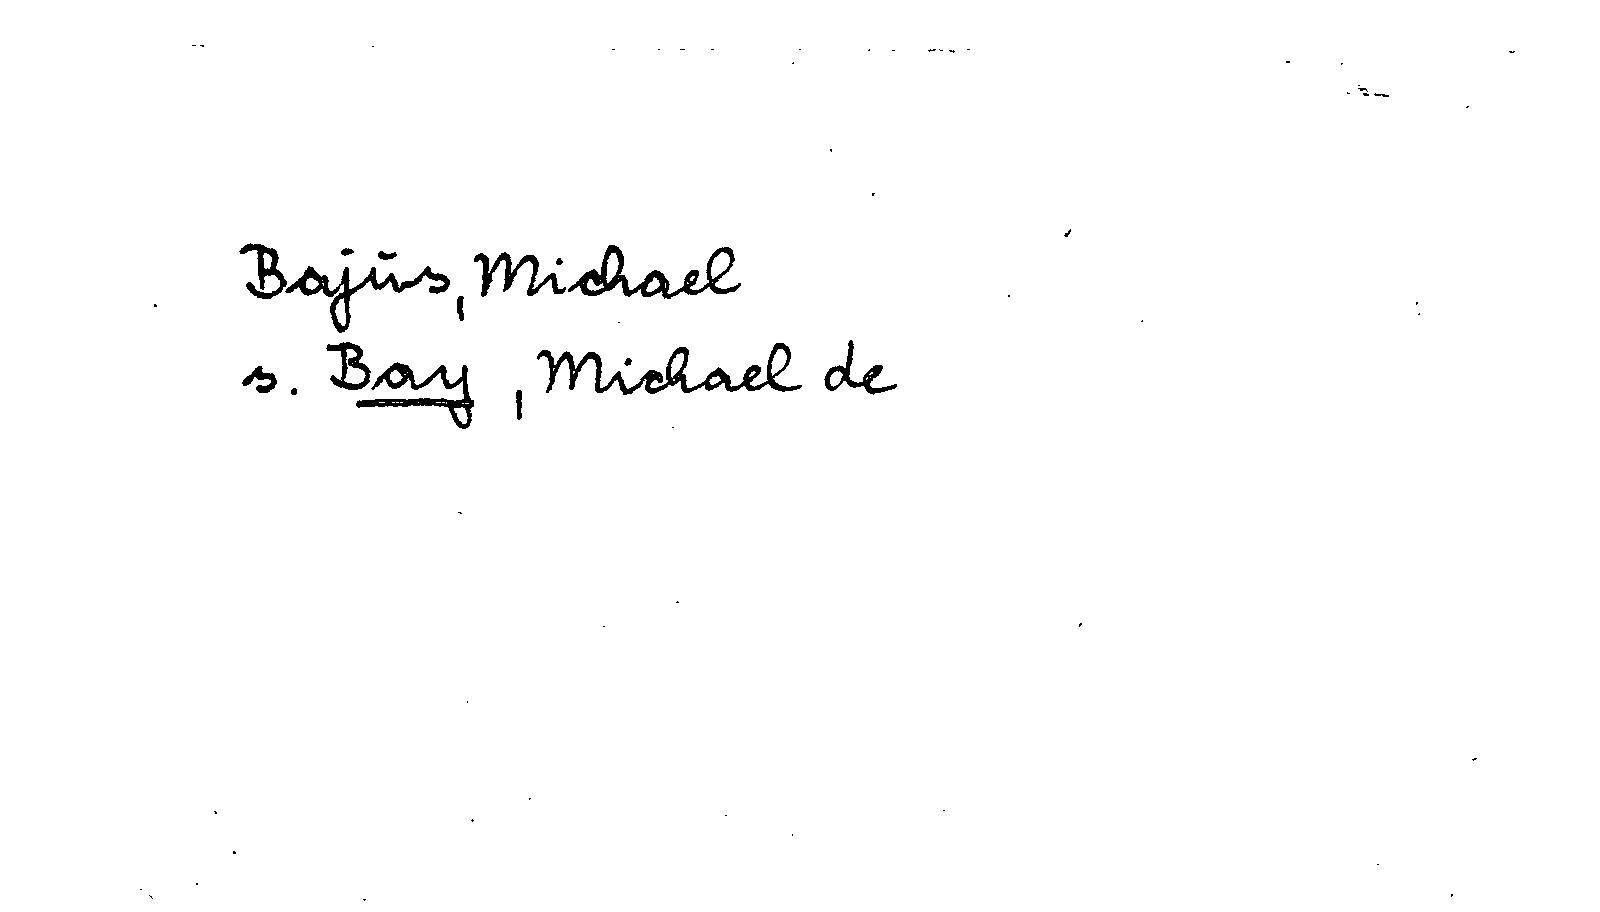 Bajus, Michael
s. Bay, Michael de